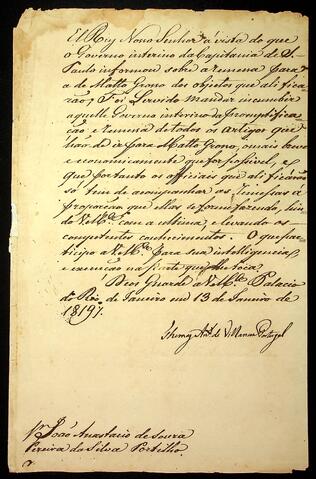 El Rey Nosso Senhor á vista do que
o Governo interino da Capitania de S.
Paulo informou sobre a remessa para
a de Matto Grosso dos objectos que ali fica
rão; Foi Servido mandar incumbir
aquelle Governo interino da promptifica
ção e remessa de todos os artigos que
hão de ir para Matto Grosso, o mais breve
e economicamente que for possivel, e
que portanto os officiaes que ali ficárão
só tem de acompanhar as remessas á
proporção que ellas se forem fazendo, hindo
V.M.ce com a ultima, e levando os
competentes conhecimentos. O que par
ticipo a V.M.ce para sua intelligencia,
e execução na parte que lhe toca.
Deos Guarde a V.M.ce Palacio
do Rio de Janeiro em 13 de Janeiro de
1819.
Thomaz Ant.o de Villanova Portugal
Sr. João Anastacio de Souza
Pereira da Silva Portilho